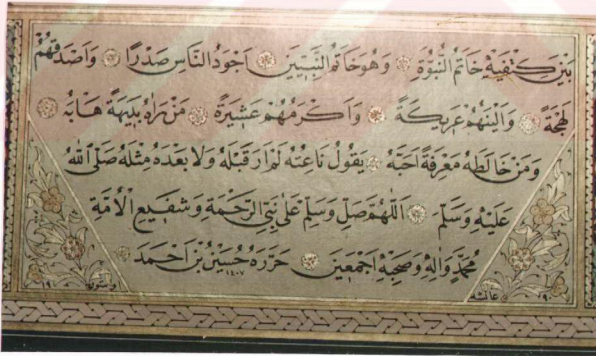 بَيْنَ كَتْفَيْهِ خَاتَمُ النُّبُوَّةِ وَهُوَ خَاتَمُ النَّبِيّٖينَ اَجْوَدُ النَّاسِ صَدْرًا وَاَصْدَقُهُمْ
لَهْجَةً وَاَلْيَنُهُمْ عَرِيكَةً وَاَكْرَمُهُمْ عَشِيرَةً مَنْ رَاٰهُ بَدِيهَةً هَابَهُ
وَمَنْ خَالَطَهُ مَعْرِفَةً اَحَبَّهُ يَقُولُ نَاعِتُهُ لَمْ اَرَ قَبْلَهُ وَلَا بَعْدَهُ مِثْلَهُ صَلَّى اللهُ
عَلَيْهِ وَسَلَّمَ اَللّٰهُمَّ صَلِّ وَسَلِّمْ عَلٰى نَبِيِّ الرَّحْمَةِ وَشَفِيعِ الْاُمَّةِ
مُحَمَّدٍ وَاٰلِهِ وَصَحْبِهِ اَجْمَعِينَ حَرَّرَهُ حُسَيْنُ بْنُ اَحْمَدَ
١٤٠٧
عائشه